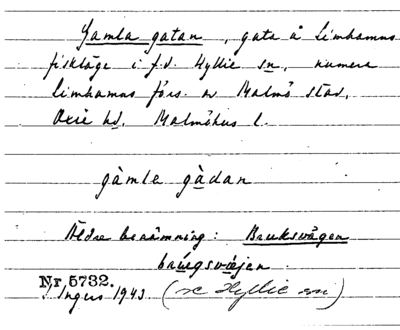 Gamla gatan, gata å Limhamns
fiskläge i f.d. Hyllie sn, numera
Limhamns förs. av Malmö stad,
Oxie hd, Malmöhus l.
gàmle gàdan
Äldre benämning: Bruksvägen
brúgsvæjen
Nr 5732.
Ingers 1943 (se Hyllie sn)